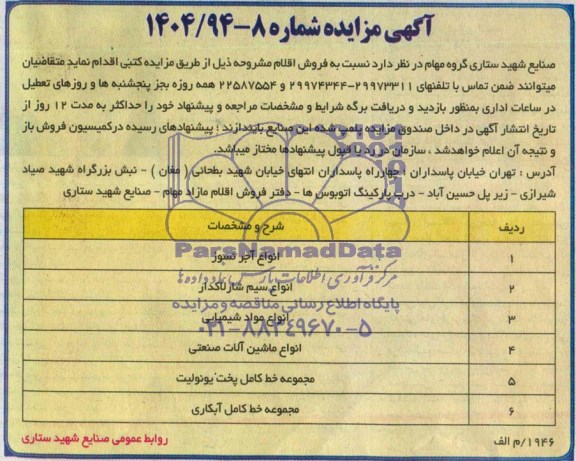 آگهی مزایده شماره ۸-۱۴۰۴/۹۴
صنایع شهید ستاری گروه مهام در نظر دارد نسبت به فروش اقلام مشروحه ذیل از طریق مزایده کتبی اقدام نماید متقاضیان
میتوانند ضمن تماس با تلفنهای ۲۹۹۷۳۳۱۱-۲۹۹۷۴۳۴۴ و ۲۲۵۸۷۵۵۴ همه روزه بجز پنجشنبه ها و روزهای تعطیل
در ساعات اداری بمنظور بازدید و دریافت برگه شرایط و مشخصات مراجعه و پیشنهاد خود را حداکثر به مدت ۱۲ روز از
تاریخ انتشار آگهی در داخل صندوق مزایده پلمپ شده این صنایع بایندازند ؛ پیشنهادهای رسیده درکمیسیون فروش باز
و نتیجه آن اعلام خواهدشد ، سازمان در رد یا قبول پیشنهادها مختار میباشد.
آدرس : تهران خیابان پاسداران ؛ چهارراه پاسداران انتهای خیابان شهید بطحائی ( مغان ) - نبش بزرگراه شهید صیاد
شیرازی - زیر پل حسین آباد - درب پارکینگ اتوبوس ها - دفتر فروش اقلام مازاد مهام - صنایع شهید ستاری
ردیف شرح و مشخصات
۱ انواع آجر نسوز
۲ انواع سیم شارلاکدار
۳ انواع مواد شیمیایی
۴ انواع ماشین آلات صنعتی
۵ مجموعه خط کامل پخت یونولیت
۶ مجموعه خط کامل آبکاری
۱۹۴۶/م الف
روابط عمومی صنایع شهید ستاری
ParsNamadData
مرکز فرآوری اطلاعات پارس نماد داده ها
پایگاه اطلاع رسانی مناقصه و مزایده
۰۲۱-۸۸۳۴۹۶۷۰-۵